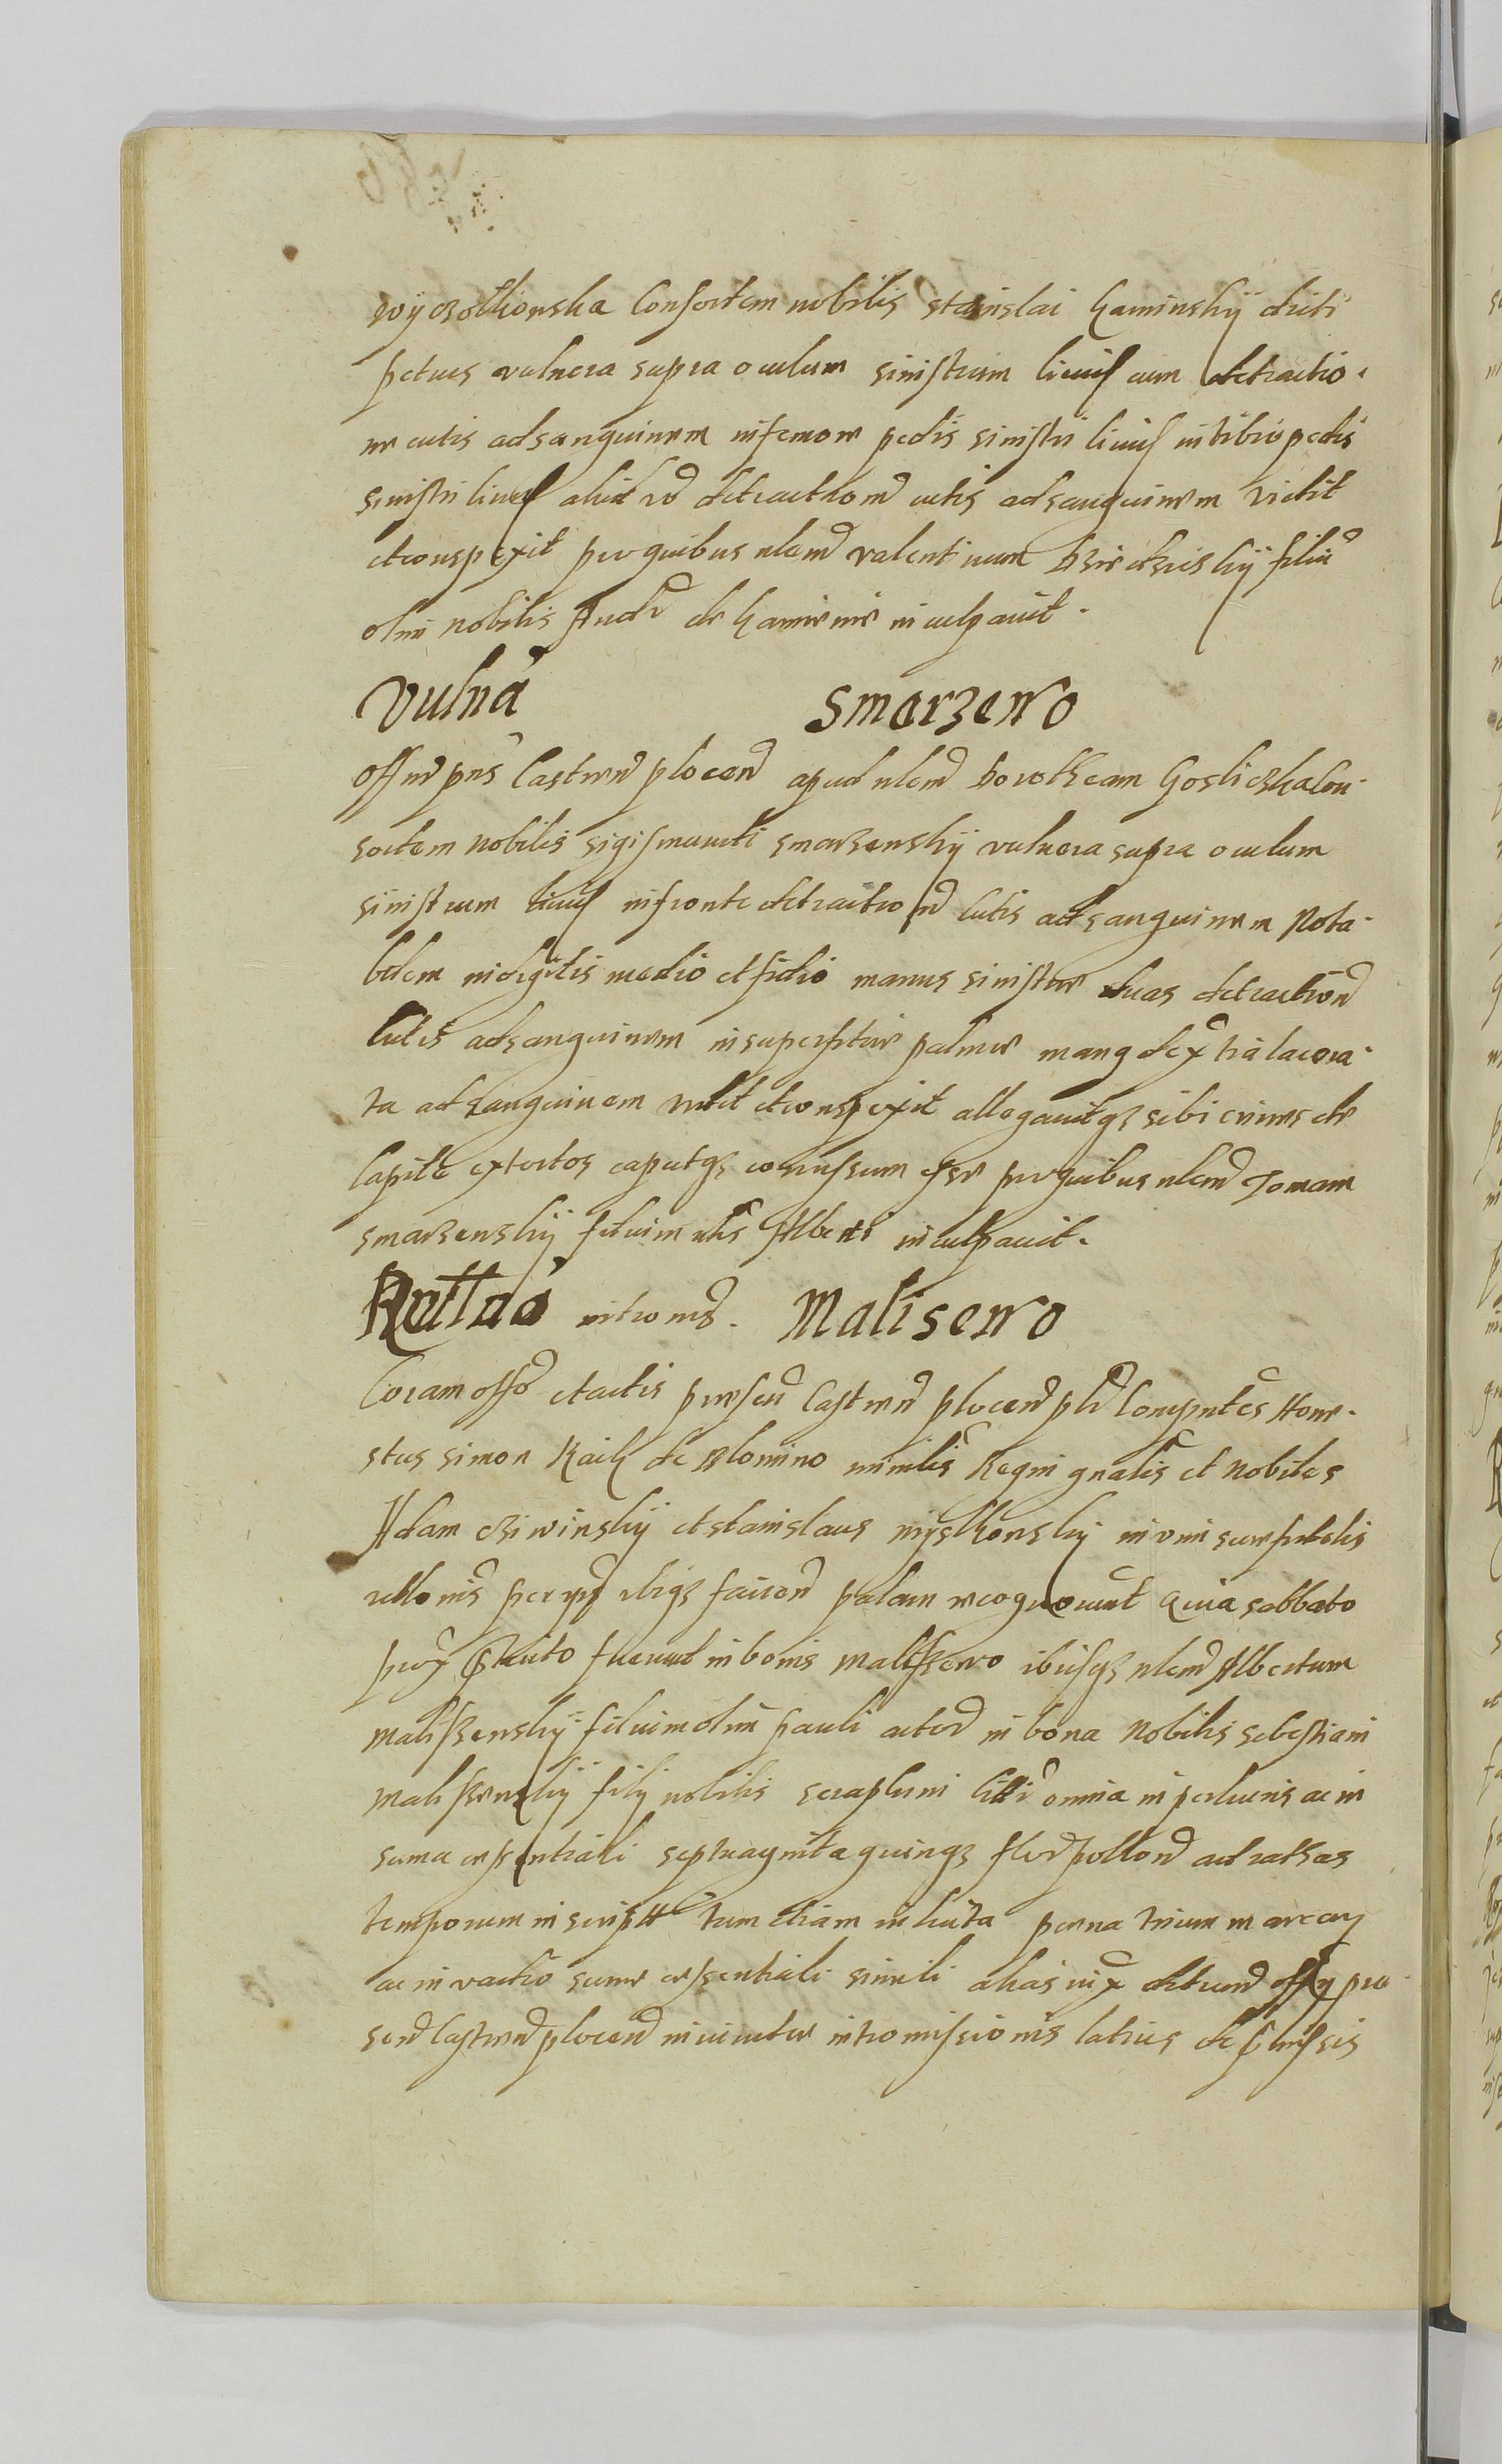 wyczolkonska Consortem nobilis stanislai Kaminskÿ dicti
petues vulnera supra oculum sinistrum livus cum detractio-
ne cutis ad sanguinem in femore pedis sinistri livus in tibio pedis
sinistri livus aliud detractiom cutis ad sanguinem vidit
et conspexit pro quibus nlem valentinum filiu
olim nobilis de Kamienie inculpavit.
Vulna Smarzewo
Offm pns Castren plocen apud nlem Dorotheam Goslickzka Con-
sortem nobilis sigismundi smarzenskÿ vulnera supra oculum
sinistrum livus in fronte detraction Cutis ad sanguinem Nota-
bilem in digitis medio et manus sinistre duas detraction
Cutis ad sanguinem in superfitie palme manq dextra lacera-
ta ad sanguinem vidit et conspexit allegavitqz sibi crines de
Capite extortos caputqz contussum esse pro quibus nlem Tomam
smarzenskÿ filium nlis Alberti inculpavit.
Rettio intromis. Maliszewo
Coram offo et actis presen Castren plocen plr Compntes Hone-
stus simon Kaik de mintlis Regni gnalis et Nobiles
Adam et stanislaus in vim sue fidelis
rellonis per ibiqz facien palam recognoverut Quia sabbato
prox pterito fuerunt in bonis Maliszewo ibiusqz nlem Albertum
Maliszenskÿ filium olim Pauli actor in bona Nobilis sebestiani
Maliszenskÿ filÿ nobilis seraphini omnia in pecuniis ac in
suma essentiali septuagintaquinqz flor pollon ad rathas
temporum in script tum etiam in lucta pena trium marcar
ac in vadio sume essentiali simili alias iux decretum offÿ pre-
sen Castren plocen in vivertute intromissionis latius de pmissis